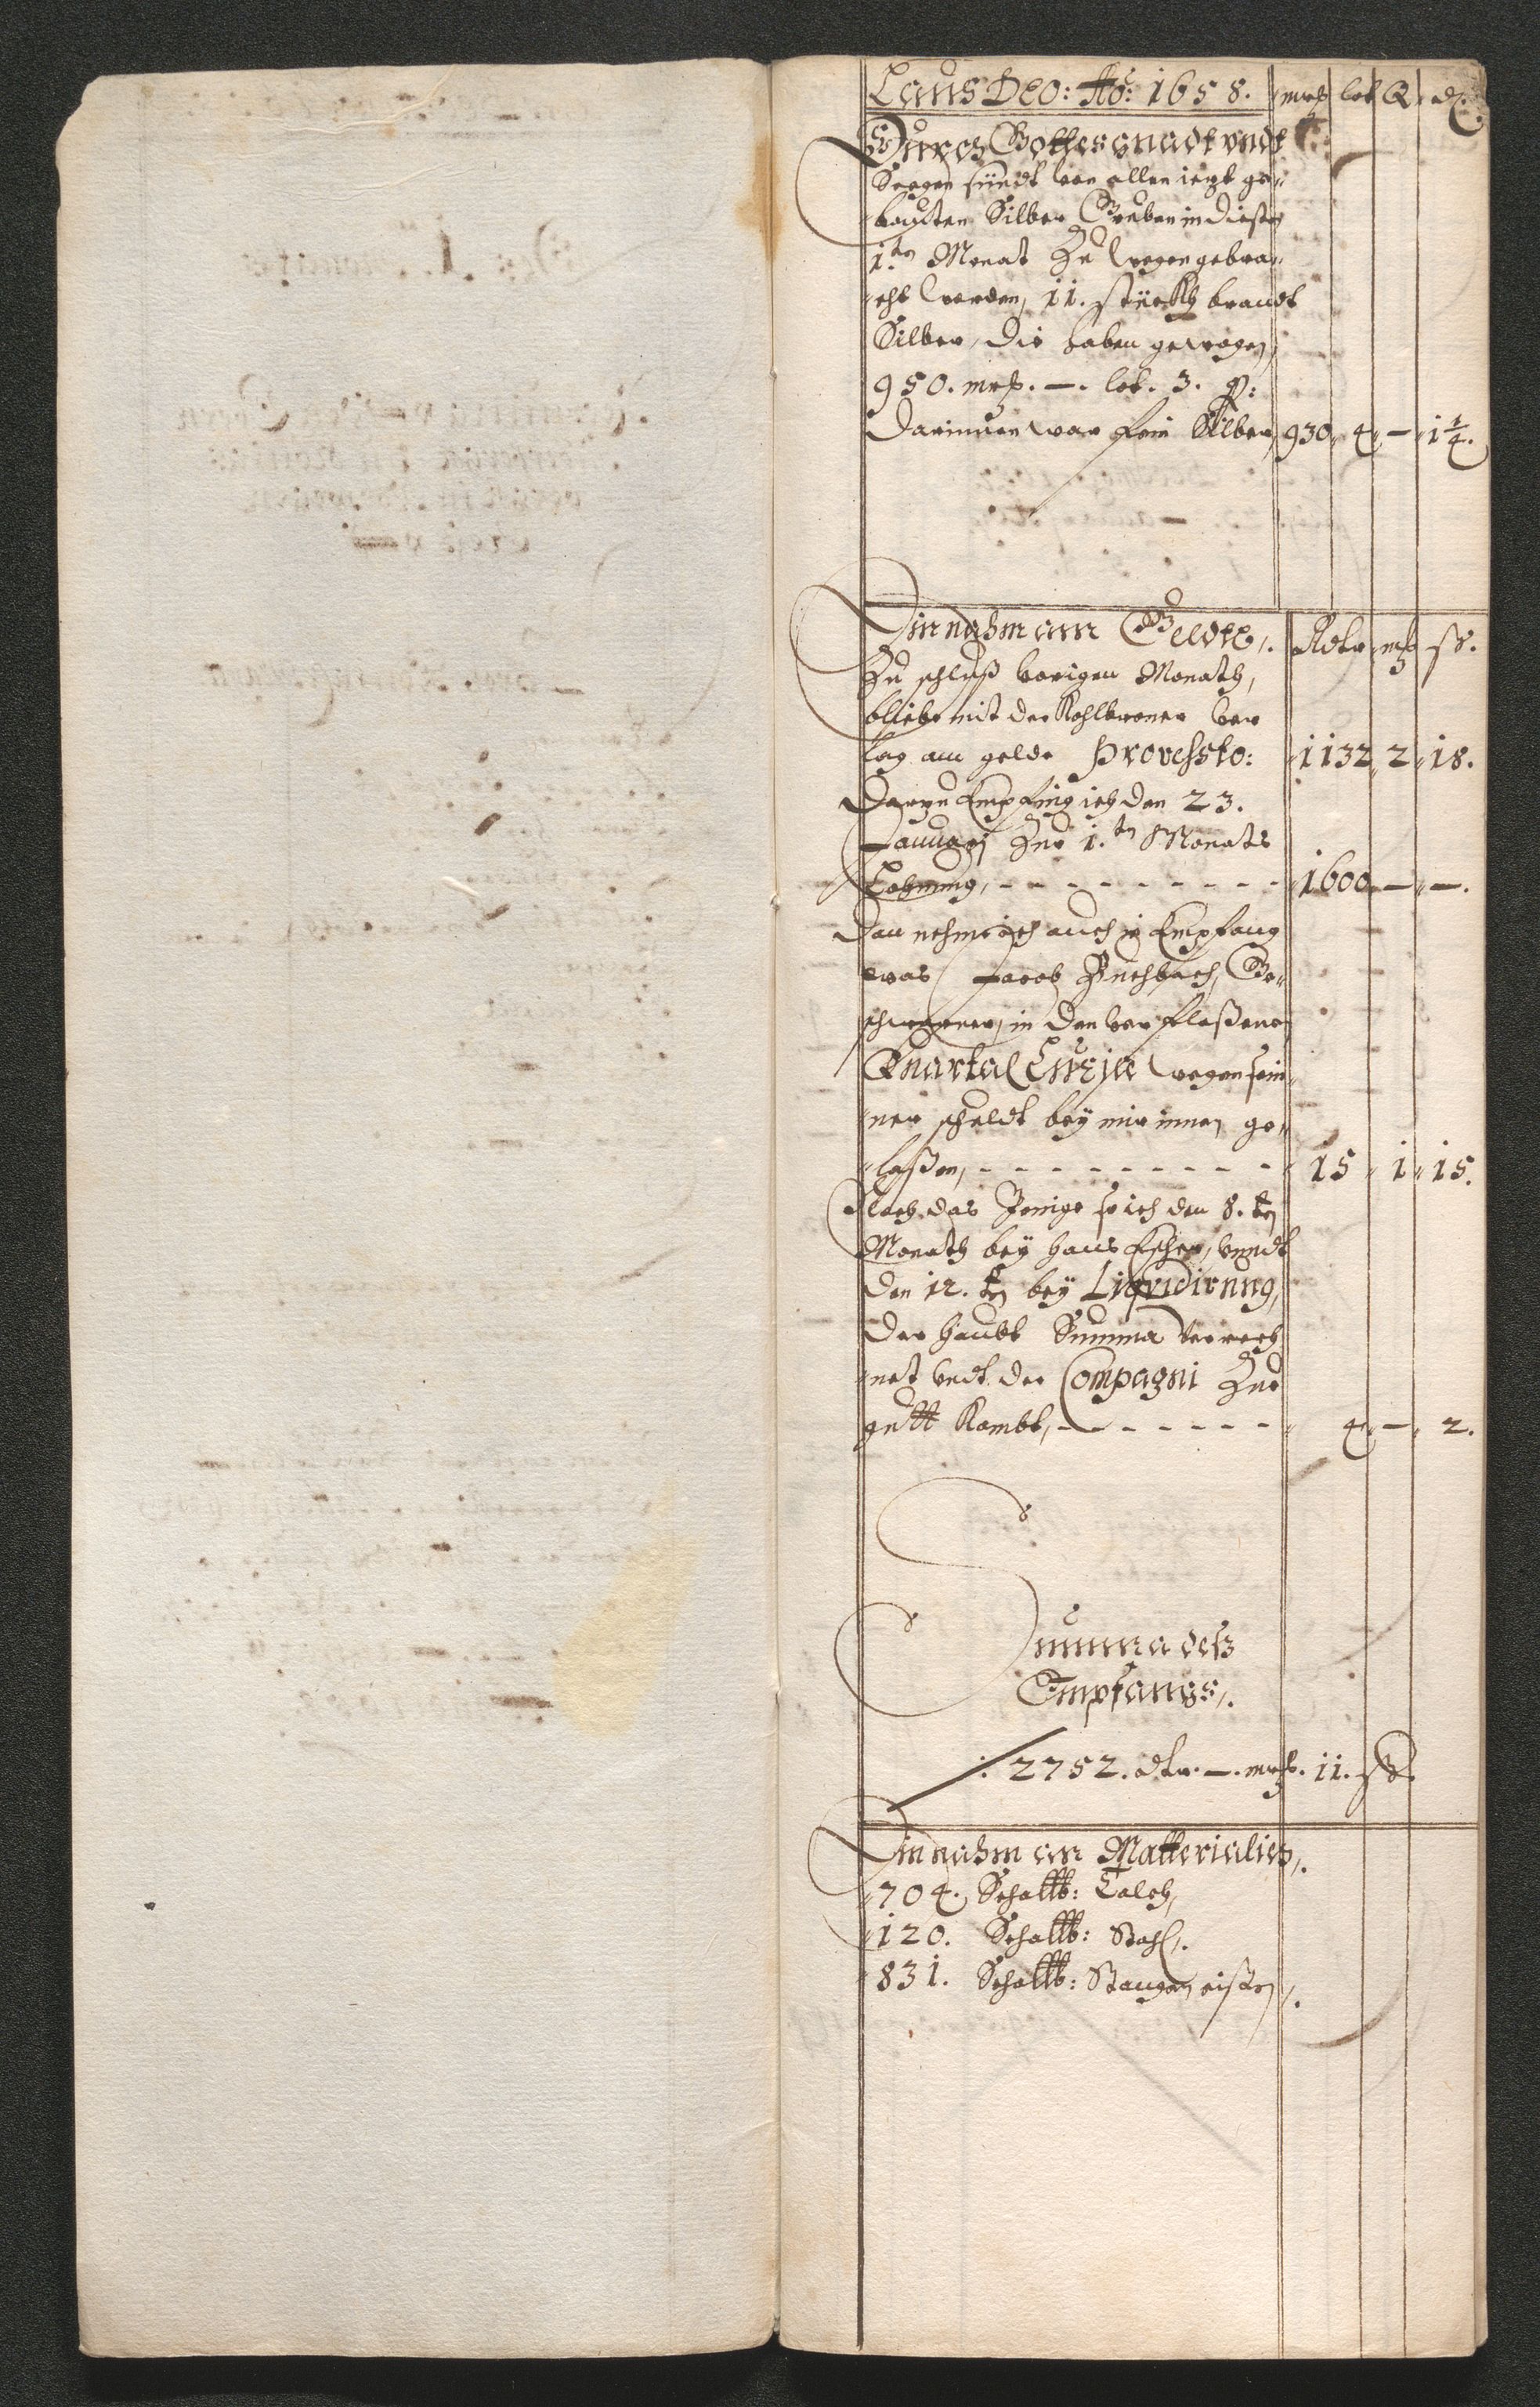 Laus DEO: Aō: 1658. mrß lot Q. ₰.
Durch Gottes gnadt vndt
Seegen sündt von allen iezt ge„
„bauten Silber Gruben in diesen
1.ten Monat Zu wegen gebra„
„cht worden, 11. stückh brandt
Silber, die haben gewogen,
950. mrß. —. lot. 3. q:
Darinnen war fein Silber, 930„ 4„ —„ 1¼.
Einnahm ann Geldte,. Rdtr mß ß.
Zu schluß vorigen Monath,
bliebe mit der Kohlbroner ver
lag am gelde Provehsto: 1132„ 2„ 18.
Darzu Empfing ich den 23.
Januarj Zur 1.ten Monats
Lohnung, - - - - - - - - - - 1600„ —„ —.
Dan nehme ich auch in Empfang
was Jacob Buchbach, Ge„
schworner, in den verfloßenen
Quartal Cruzis wegen sein„
„ner schuldt bey mir innen ge„
„laßen, - - - - - - - - - 15„ 1„ 15.
Noch das Jenige so ich den 8.ten
Monath bey hans Escher, vnndt
den 12.ten bey Liqvidirung,
der haubt Summa verrech
„net vndt der Compagni Zur
gutt kombt, - - - - - - - 4„ —„ 2.
Summa deß
Empfangs,.
: 2752. dtr. —. mrß. 11. ß.
Einnahm an Matterialien,.
704. Schallb: Talch,
120. Schallb: Stahl,.
831. Schallb: Stangen eisen,.